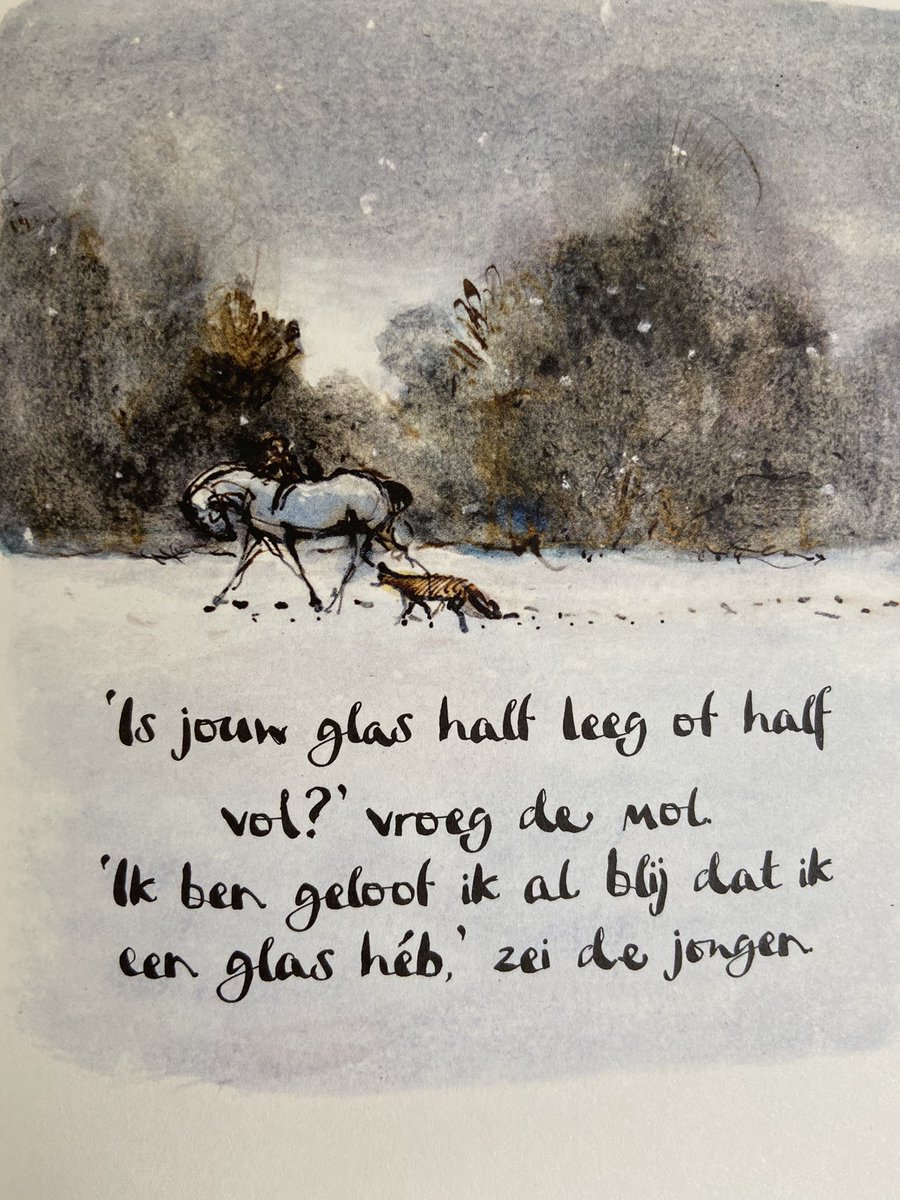 'Is jouw glas half leeg of half
vol?' vroeg de mol.
'Ik ben geloof ik al blij dat ik
een glas héb,' zei de jongen.